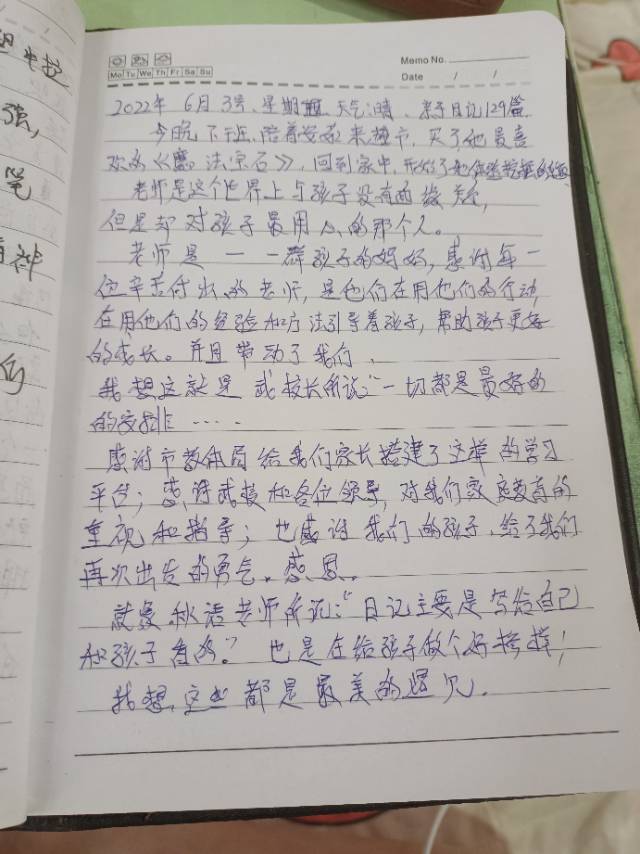 Memo No.
Mo Tu We Th Fr Sa Su
Date / /
2022年 6月 3号、星期五 天气:晴、亲子日记129篇
今晚下班,陪着 来超市,买了他最喜
欢的《魔法宝石》,回到家中,开始了
老师是这个世界上与孩子没有血缘关系,
但是却对孩子最用心的那个人。
老师是一一群孩子的妈妈,感谢每一
位辛苦付出的老师,是他们在用他们的行动,
在用他们的经验和方法引导着孩子,帮助孩子更好
的成长。并且带动了我们、
我想这就是武校长所说:“一切都是最好的
的安排……
感谢市教体局给我们家长搭建了这样的学习
平台;感谢武校和各位领导,对我们家庭教育的
重视和指导;也感谢我们的孩子,给了我们
再次出发的勇气。感恩。
就像秋洁老师所说:“日记主要是写给自己
和孩子看的。”也是在给孩子做个好榜样!
我想,这些都是最美的遇见.
强,
笔